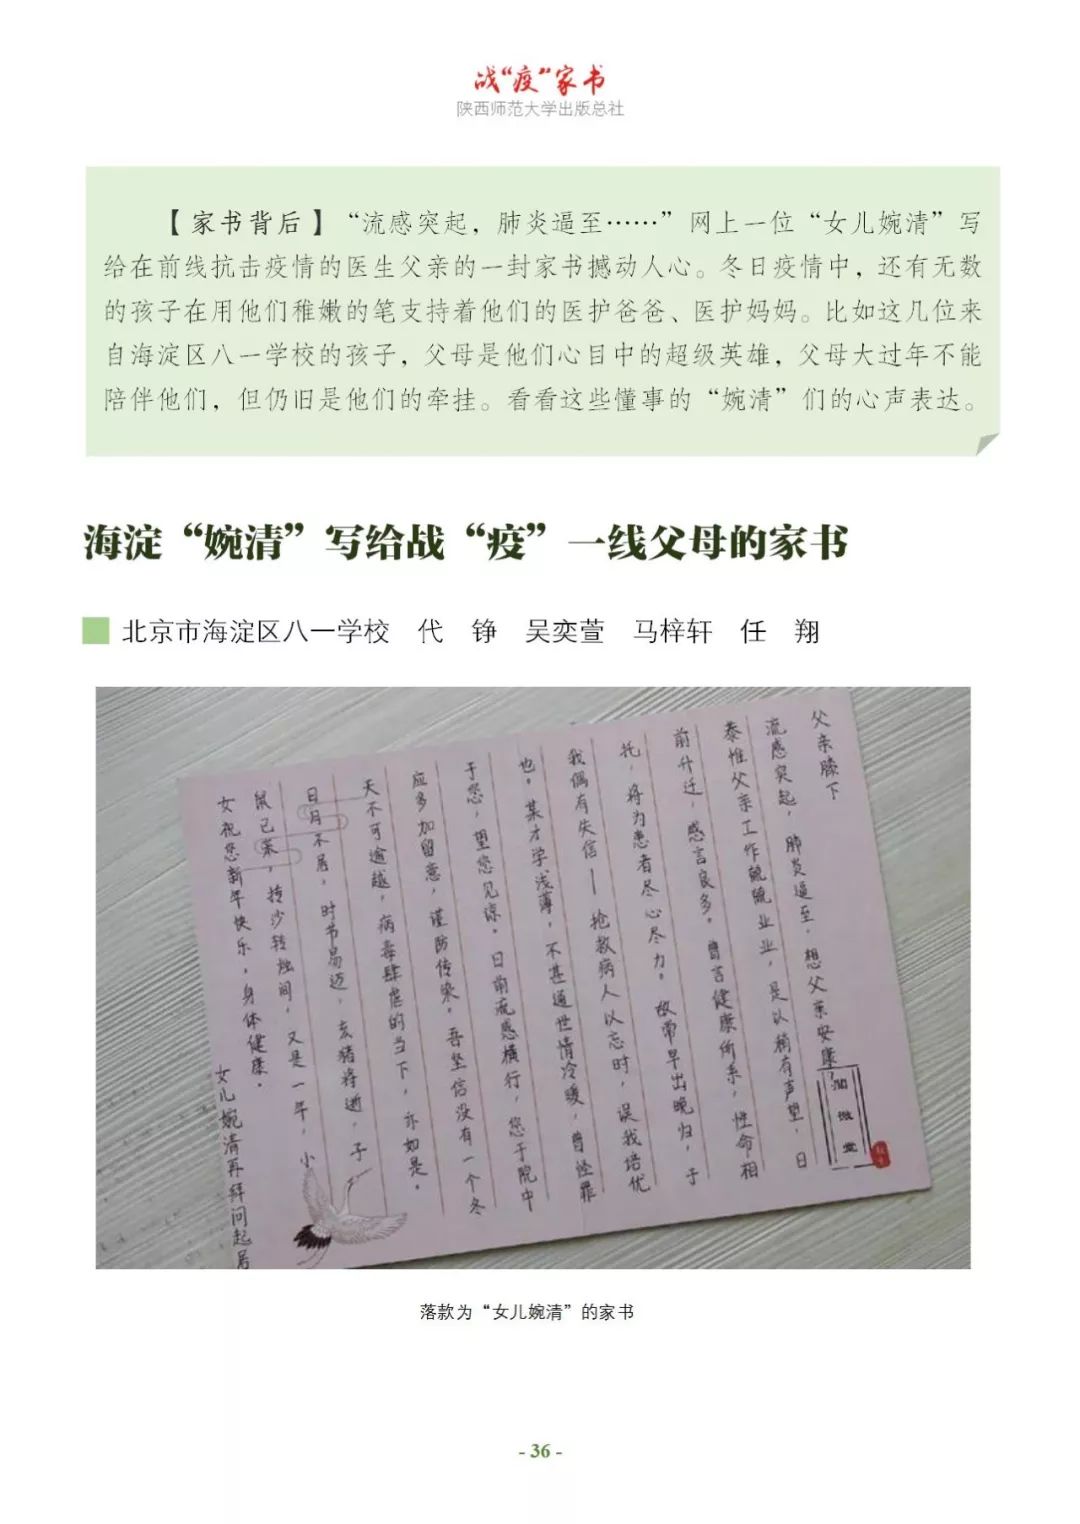 战“疫”家书
陕西师范大学出版总社
【家书背后】“流感突起，肺炎逼至……”网上一位“女儿婉清”写
给在前线抗击疫情的医生父亲的一封家书撼动人心。冬日疫情中，还有无数
的孩子在用他们稚嫩的笔支持着他们的医护爸爸、医护妈妈。比如这几位来
自海淀区八一学校的孩子，父母是他们心目中的超级英雄，父母大过年不能
陪伴他们，但仍旧是他们的牵挂。看看这些懂事的“婉清”们的心声表达。
海淀“婉清”写给战“疫”一线父母的家书
北京市海淀区八一学校 代 铮 吴奕萱 马梓轩 任 翔
父亲膝下
流感突起，肺炎逼至，想父亲安康，
泰惟父亲工作兢兢业业，是以稍有声望，日
前升迁，感言良多。曾言健康所系，性命相
托，将为患者尽心尽力。故常早出晚归，于
我偶有失信——抢救病人以忘时，误我培优
也。某才学浅薄，不甚通世情冷暖，曾怪罪
于您，望您见谅。日前流感横行，您于院中
应多加留意，谨防传染。吾坚信没有一个冬
天不可逾越，病毒肆虐的当下，亦如是。
日月不居，时节易迈，玄猪将逝，子
鼠已来，抟沙转烛间，又是一年，小
女祝您新年快乐，身体健康。
女儿婉清再拜问起居
微
落款为“女儿婉清”的家书
- 36 -